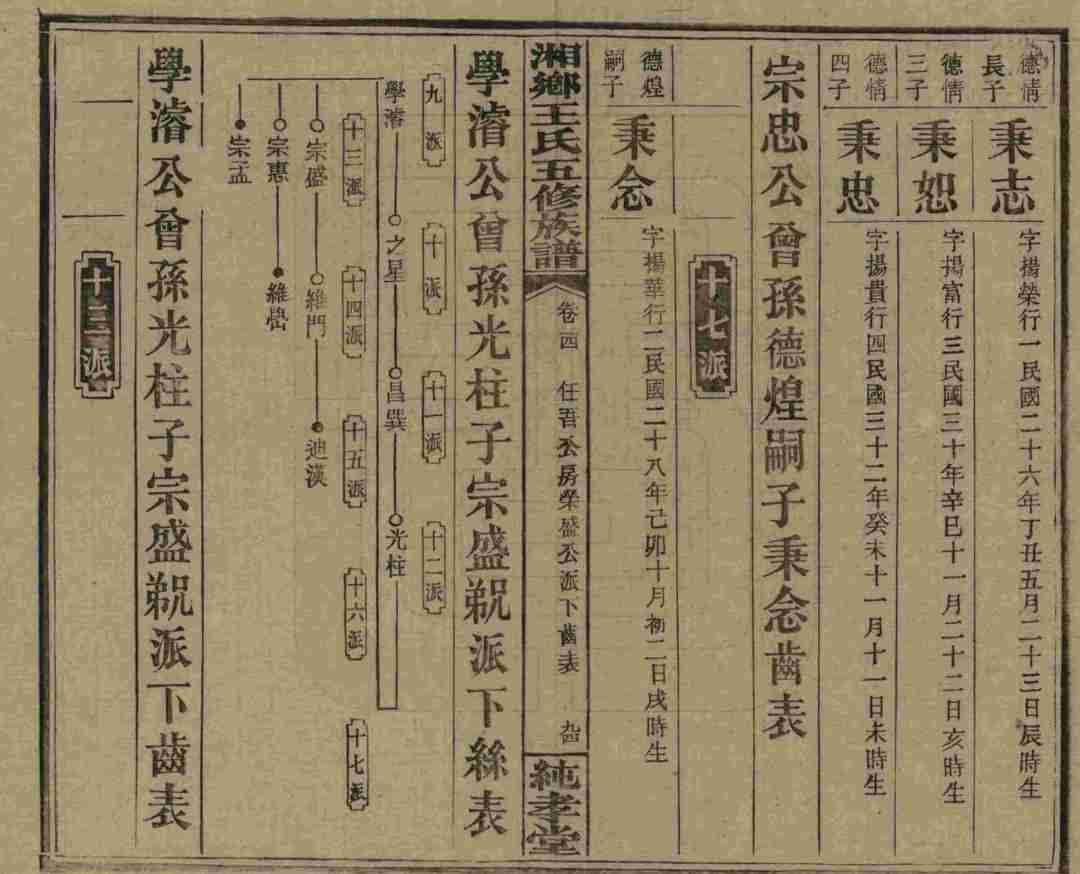 德情長子
秉志
字揚榮行一民國二十六年丁丑五月二十三日辰時生
德情三子
秉恕
字揚富行三民國三十年辛巳十一月二十二日亥時生
德情四子
秉忠
字揚貴行四民國三十二年癸未十一月十一日未時生
宗忠公曾孫德煌嗣子秉念齒表
十七派
德煌嗣子
秉念
字揚華行二民國二十八年己卯十月初二日戌時生
湘鄉王氏五修族譜
卷四
任吾公房榮盛公派下齒表
純孝堂
學濬公曾孫光柱子宗盛派下絲表
九派
十派
十一派
十二派
學濬
之星
昌巽
光柱
十三派
十四派
十五派
十六派
十七派
宗盛
維門
迪漢
宗惠
維嶨
宗孟
學濬公曾孫光柱子宗盛派下齒表
十三派